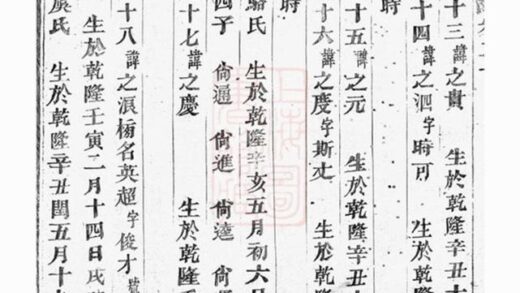 十三諱之貴 生於乾隆辛丑十
十四諱之泗字時可 生於乾隆
時
十五諱之元 生於乾隆辛丑十
十六諱之度字斯丈 生於乾隆
時
駱氏 生於乾隆辛亥五月初六日
四子 尙通 尙進 尙達 尙
十七諱之慶 生於乾隆
十八諱之淚榜名英超字俊才號
生於乾隆壬寅二月十四日戌時
虞氏 生於乾隆辛丑閏五月十